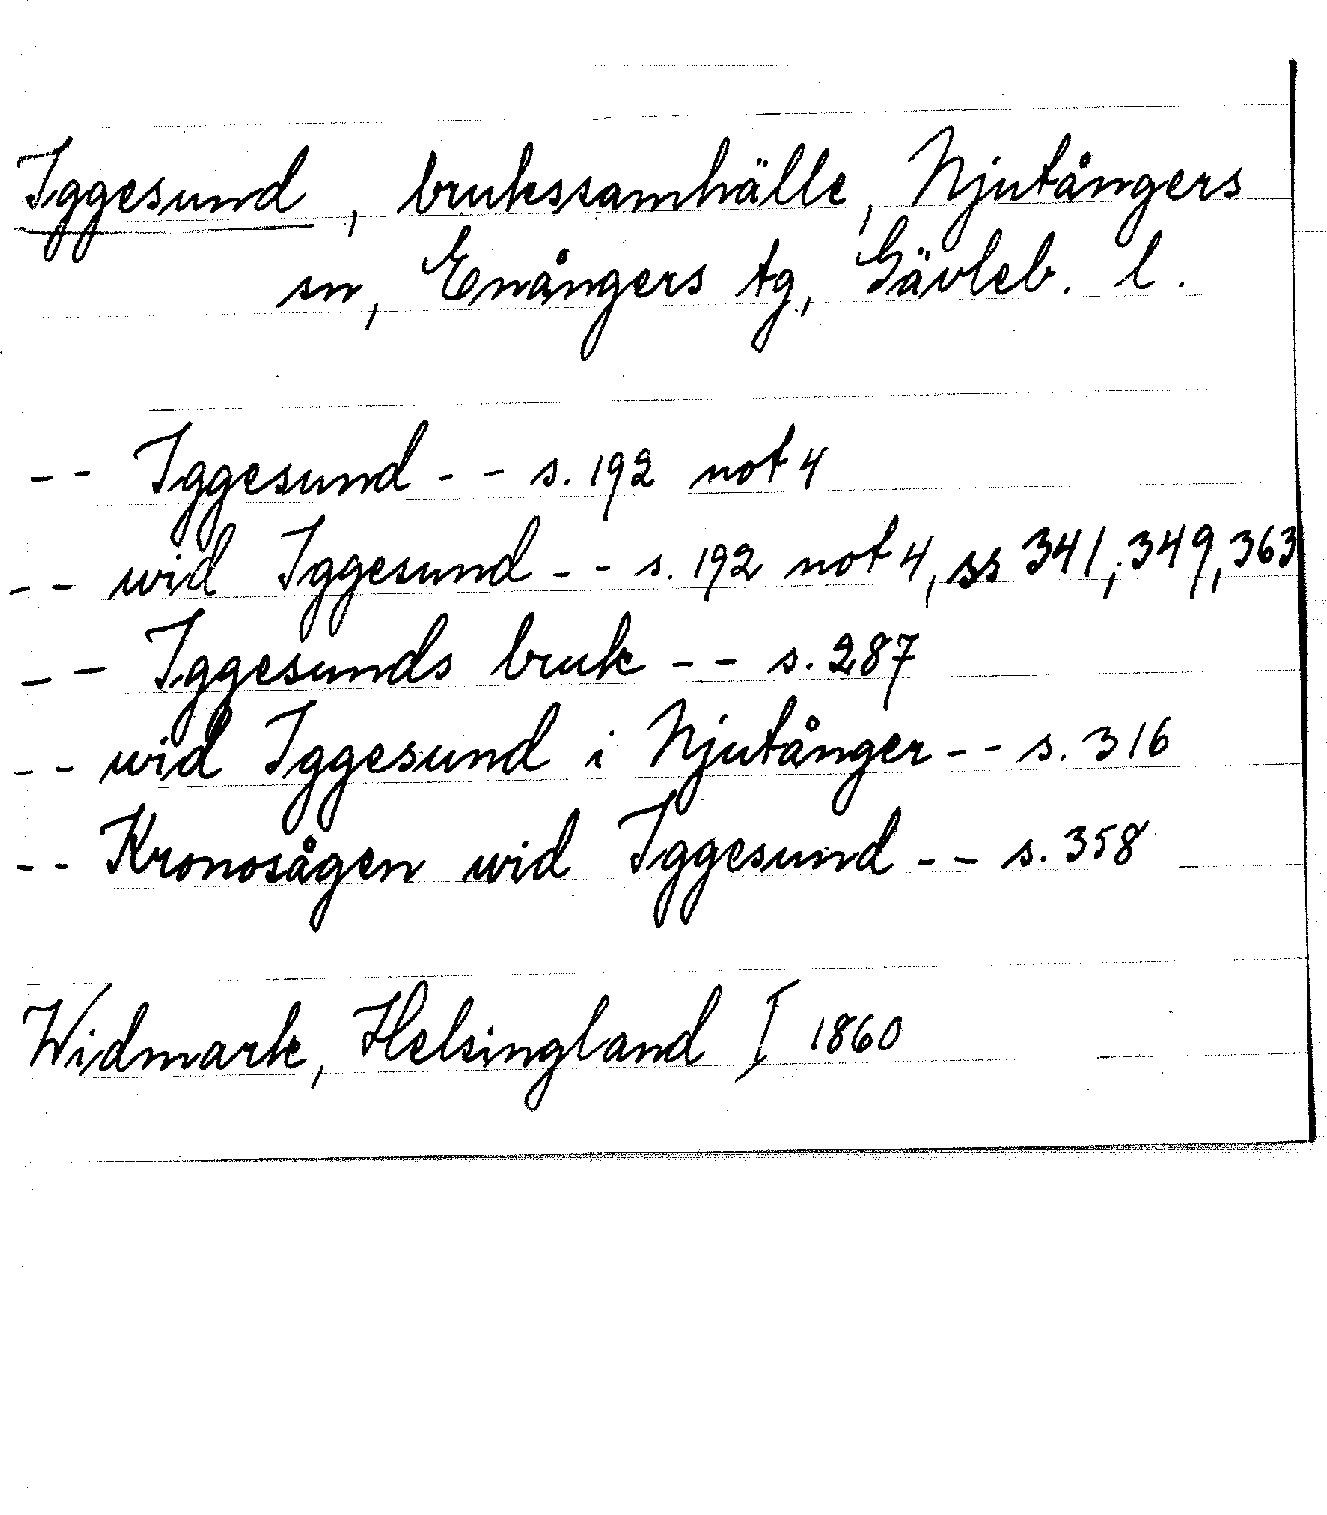 Iggesund, brukssamhälle, Njutångers
sn, Enångers tg, Gävleb. l.
-- Iggesund -- s. 192 not 4
-- wid Iggesund -- s. 192 not 4, ss 341, 349, 363
-- Iggesunds bruk -- s. 287
-- wid Iggesund i Njutånger -- s. 316
-- Kronosågen wid Iggesund -- s. 358
Widmark, Helsingland I 1860